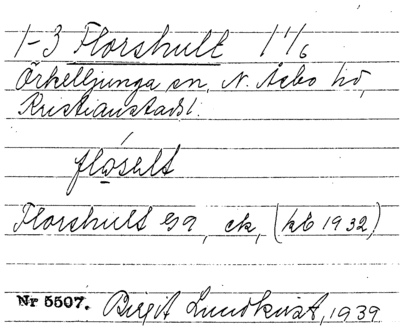 1-3 Florshult 1 1/6
Örkelljunga sn, N. Åsbo hd,
Kristianstads l.
fløsalt
Florshult gg, ck, (kb 1932)
Nr 5507. Birgit Lundkvist, 1939